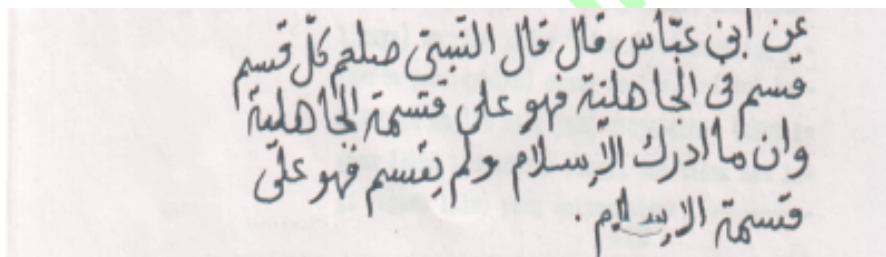 عن ابن عبّاس قال قال النّبىّ صلعم كلّ قسم
قسم فى الجاهليّة فهو على قسمة الجاهلية
وان ما ادرك الاسلام ولم يقسم فهو على
قسمة الاسلام .